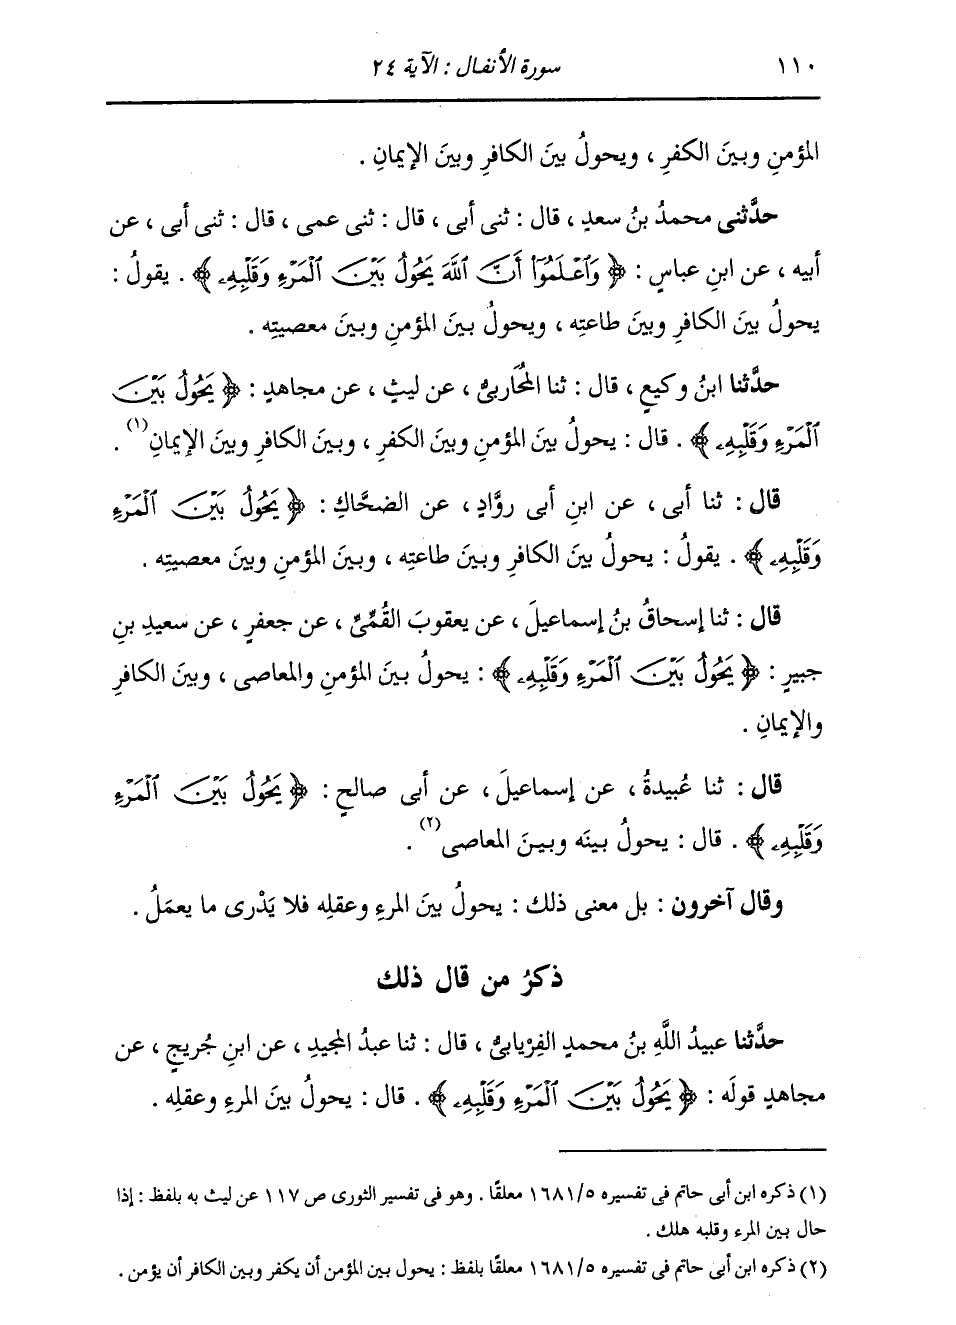 ١١٠ سورة الأنفال : الآية ٢٤
المؤمنِ وبينَ الكفرِ ، ويحولُ بينَ الكافرِ وبينَ الإيمانِ .
حدَّثنى محمدُ بنُ سعدٍ ، قال : ثنى أبى ، قال : ثنى عمى ، قال : ثنى أبى ، عن
أبيه ، عن ابنِ عباسٍ : ﴿ وَٱعْلَمُوٓا۟ أَنَّ ٱللَّهَ يَحُولُ بَيْنَ ٱلْمَرْءِ وَقَلْبِهِۦ ﴾ . يقولُ :
يحولُ بينَ الكافرِ وبينَ طاعتِه ، ويحولُ بينَ المؤمنِ وبينَ معصيتِه .
حدَّثنا ابنُ وكيعٍ ، قال : ثنا المُحَاربىُّ ، عن ليثٍ ، عن مجاهدٍ : ﴿ يَحُولُ بَيْنَ
ٱلْمَرْءِ وَقَلْبِهِۦ ﴾ . قال : يحولُ بينَ المؤمنِ وبينَ الكفرِ ، وبينَ الكافرِ وبينَ الإيمانِ (١) .
قال : ثنا أبى ، عن ابنِ أبى روَّادٍ ، عن الضحَّاكِ : ﴿ يَحُولُ بَيْنَ ٱلْمَرْءِ
وَقَلْبِهِۦ ﴾ . يقولُ : يحولُ بينَ الكافرِ وبينَ طاعتِه ، وبينَ المؤمنِ وبينَ معصيتِه .
قال : ثنا إسحاقُ بنُ إسماعيلَ ، عن يعقوبَ القُمِّىِّ ، عن جعفرٍ ، عن سعيدِ بنِ
جبيرٍ : ﴿ يَحُولُ بَيْنَ ٱلْمَرْءِ وَقَلْبِهِۦ ﴾ : يحولُ بينَ المؤمنِ والمعاصى ، وبينَ الكافرِ
والإيمانِ .
قال : ثنا عُبيدةُ ، عن إسماعيلَ ، عن أبى صالحٍ : ﴿ يَحُولُ بَيْنَ ٱلْمَرْءِ
وَقَلْبِهِۦ ﴾ . قال : يحولُ بينَه وبينَ المعاصى (٢) .
وقال آخرون : بل معنى ذلك : يحولُ بينَ المرءِ وعقلِه فلا يَدْرى ما يعمَلُ .
ذكرُ من قال ذلك
حدَّثنا عبيدُ اللَّهِ بنُ محمدٍ الفِرْيابىُّ ، قال : ثنا عبدُ المجيدِ ، عن ابنِ جُريجٍ ، عن
مجاهدٍ قولَه : ﴿ يَحُولُ بَيْنَ ٱلْمَرْءِ وَقَلْبِهِۦ ﴾ . قال : يحولُ بينَ المرءِ وعقلِه .
(١) ذكره ابن أبى حاتم فى تفسيره ١٦٨١/٥ معلقًا . وهو فى تفسير الثورى ص ١١٧ عن ليث به بلفظ : إذا
حال بين المرء وقلبه هلك .
(٢) ذكره ابن أبى حاتم فى تفسيره ١٦٨١/٥ معلقًا بلفظ : يحول بين المؤمن أن يكفر وبين الكافر أن يؤمن .